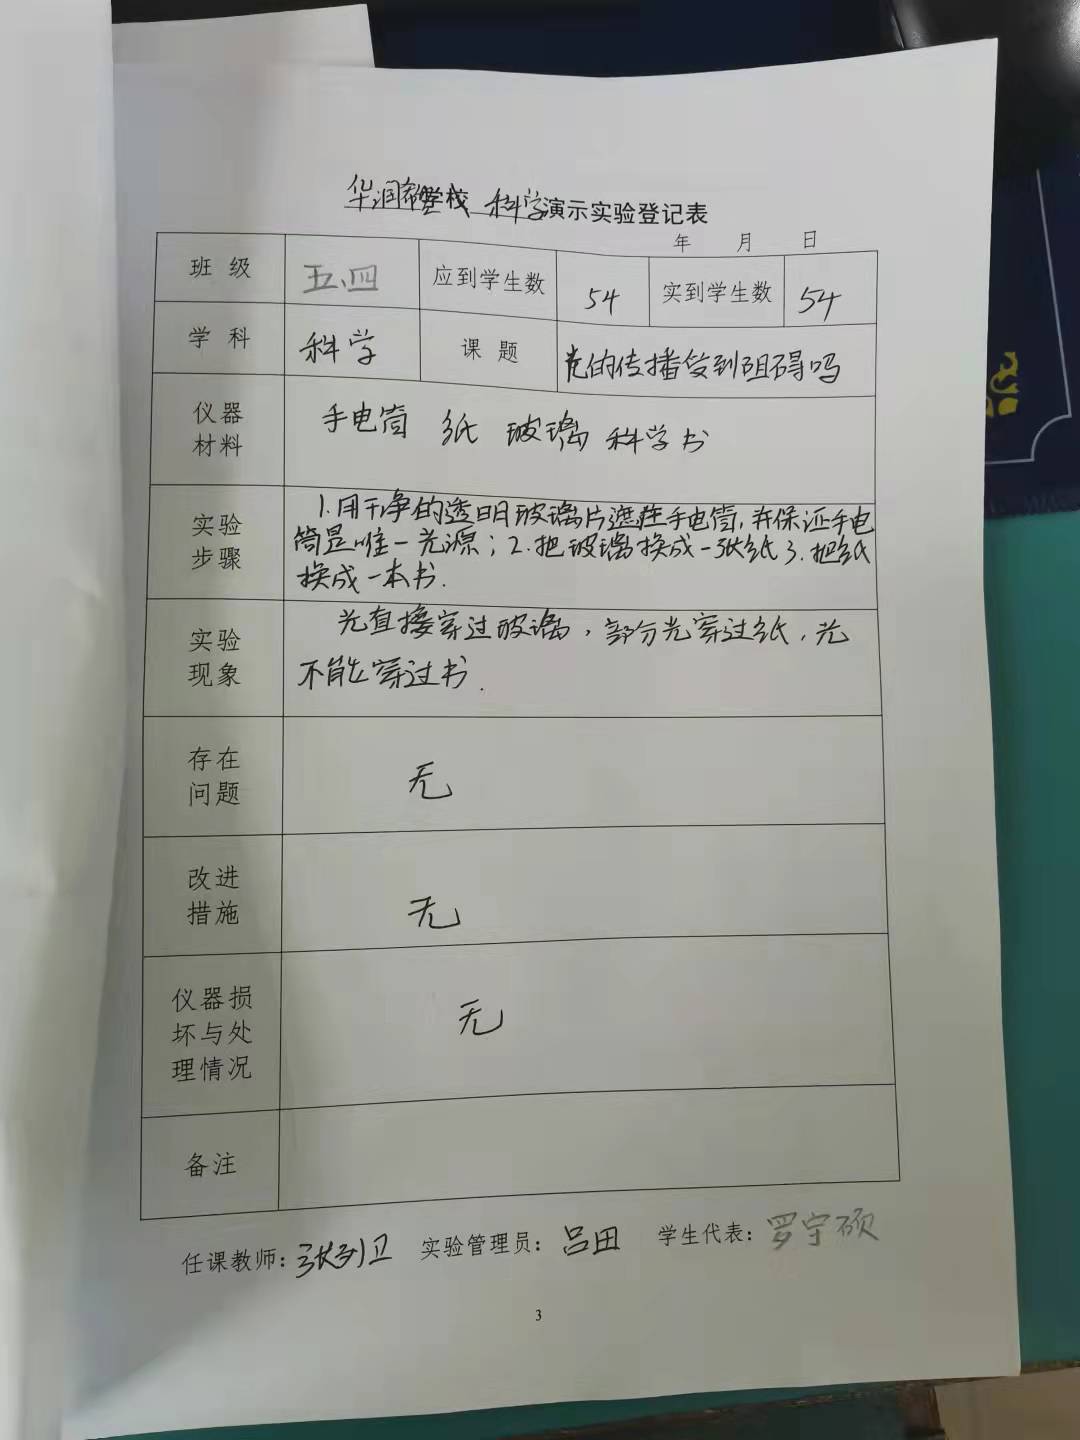 华润希望学校 科学演示实验登记表
年 月 日
班 级 五.四 应到学生数 54 实到学生数 54
学 科 科学 课 题 光的传播受到阻碍吗
仪器
材料
手电筒 纸 玻璃 科学书
实验
步骤
1.用干净的透明玻璃片遮住手电筒,并保证手电
筒是唯一光源;2.把玻璃换成一张纸3.把纸
换成一本书.
实验
现象
光直接穿过玻璃,部分光穿过纸,光
不能穿过书.
存在
问题
无
改进
措施
无
仪器损
坏与处
理情况
无
备注
任课教师: 实验管理员:吕田 学生代表:罗宇硕
3